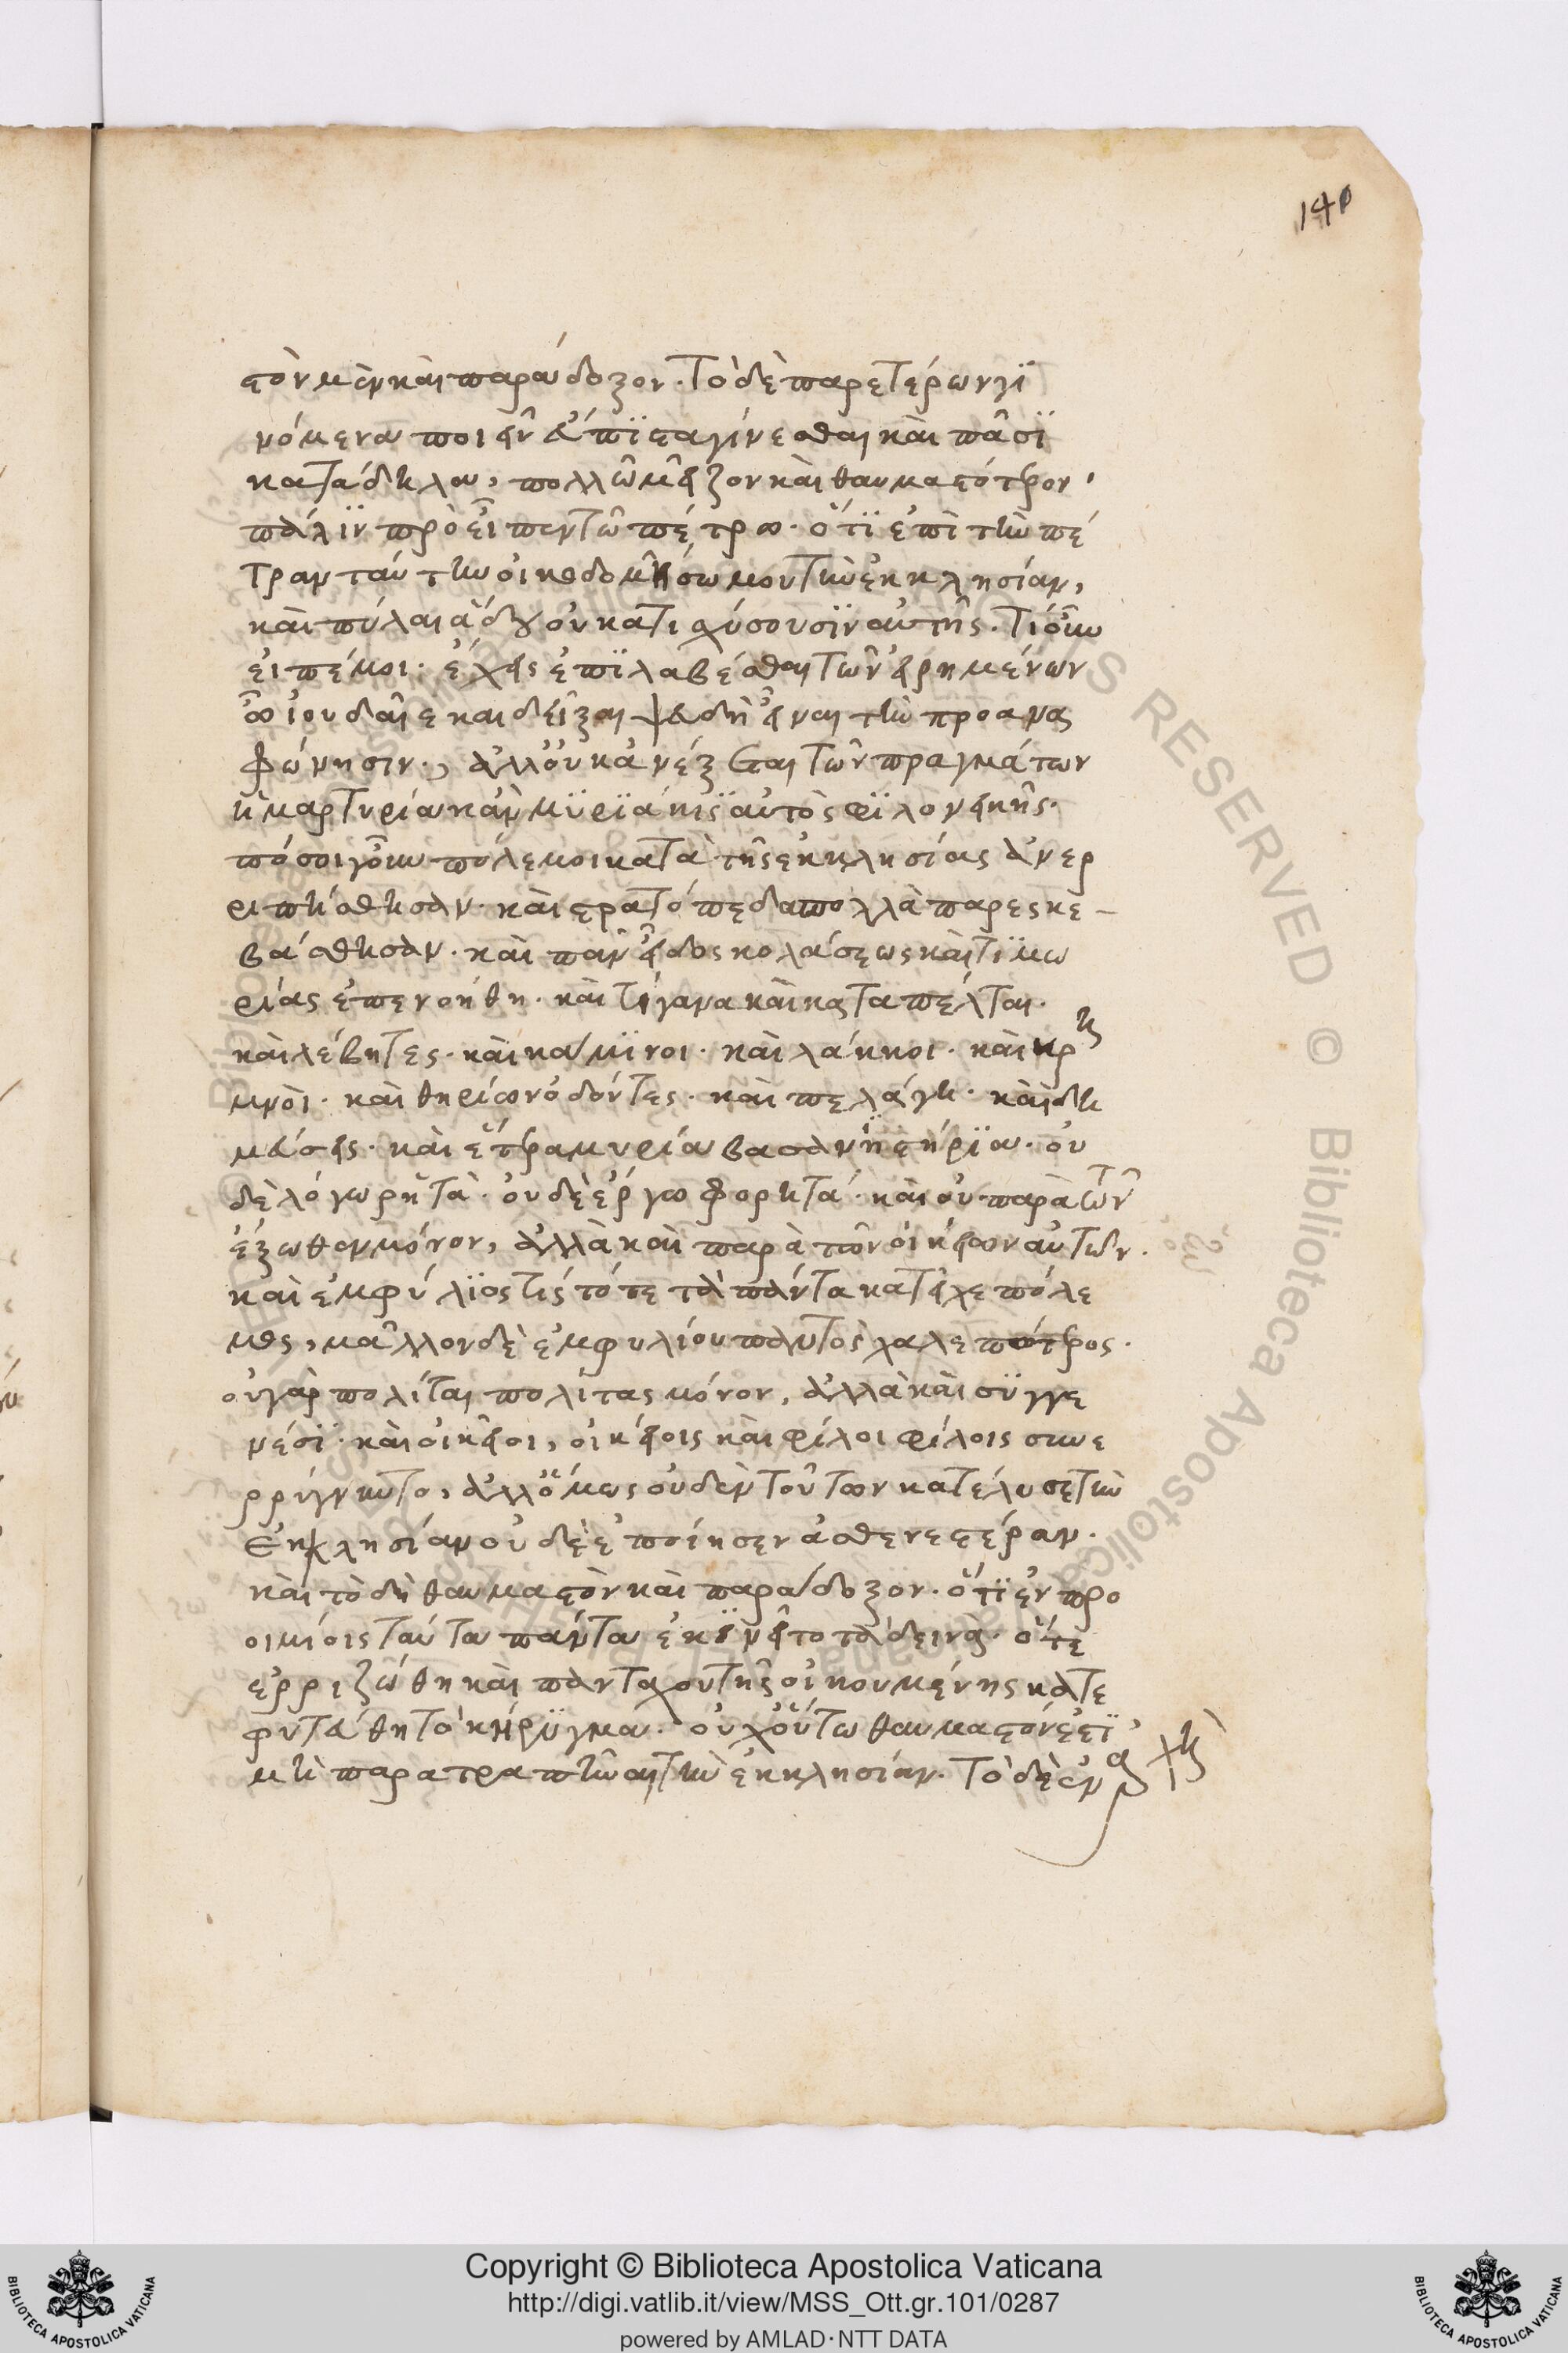 140
στὸν μὲν καὶ παράδοξον. Τὸ δὲ παρ ετέρων γϊ
νόμενα ποιεῖν εὐέπϊστα γίνεσθαι καὶ πᾶσϊ
κατάδηλα, πολλῶ μεῖζον καὶ θαυμαστότερον,
πάλϊν προεῖπεν τῶ πέτρω. ὅτϊ ἐπὶ τὴν πέ
τραν ταύτην οἰκοδομήσω μου τὴν ἐκκλησίαν,
καὶ πύλαι ἅδου οὐ κατισχύσουσϊν αὐτῆς. Τί οὖν
εἰπέ μοι. ἔχεις ἐπϊλαβέσθαι τῶν εἰρημένων
ὦ ἰουδαῖε καὶ δεῖξαι ψευδῆ εἶναι τὴν προανα
φώνησιν., ἀλλ' οὐκ ἀνέξεται τῶν πραγμάτων
ἡ μαρτυρία κἂν μϋρϊάκις αὐτὸς φϊλονεικῆς.
πόσοι γοῦν πόλεμοι κατὰ τῆς ἐκκλησίας ἀνερ
ριπήσθησαν. καὶ στρατόπεδα πολλὰ παρεσκε-
βάσθησαν. καὶ πᾶν εἶδος κολάσεως καὶ τϊμω
ρίας ἐπενοήθη. καὶ τίγανα καὶ καταπέλται.
καὶ λέβητες. καὶ κάμϊνοι. καὶ λάκκοι. καὶ κρη
μνοὶ. καὶ θηρίων ὀδόντες. καὶ πελάγη. καὶ δη
μεύσεις. καὶ ἕτερα μυρία βασανϊστήρϊα. οὐ
δὲ λόγω ρητὰ. οὐδὲ ἔργω φορητά. καὶ οὐ παρὰ τῶν
ἔξωθεν μόνον, ἀλλὰ καὶ παρὰ τῶν οἰκείων αὐτῶν.
καὶ ἐμφύλϊος τίς τότε τὰ πάντα κατεῖχε πόλε
μος, μᾶλλον δὲ ἐμφυλίου παντὸς χαλεπώτερος.
οὐ γὰρ πολίται πολίτας μόνον, ἀλλὰ καὶ σϋγγε
νέσϊ. καὶ οἰκεῖοι, οἰκείοις καὶ φίλοι φίλοις συνε
ρρήγνυντο, ἀλλ' ὅμως οὐδὲν τούτων κατέλυσε τὴν
ἐκκλησίαν οὐδὲ ἐποίησεν ἀσθενεστέραν.
καὶ τὸ δὴ θαυμαστὸν καὶ παράδοξον. ὅτϊ ἐν προ
οιμίοις ταύτα πάντα ἐκϊνεῖτο τὰ δεινὰ. ὅτε
ἐρριζώθη καὶ πανταχοῦ τῆς οἰκουμένης κατε
φυτεύθη τὸ κήρϋγμα. οὐχ οὕτω θαυμαστόν ἐστϊ
μὴ παρατραπῆναι τὴν ἐκκλησίαν. Τὸ δὲ ἐν αρχῆ